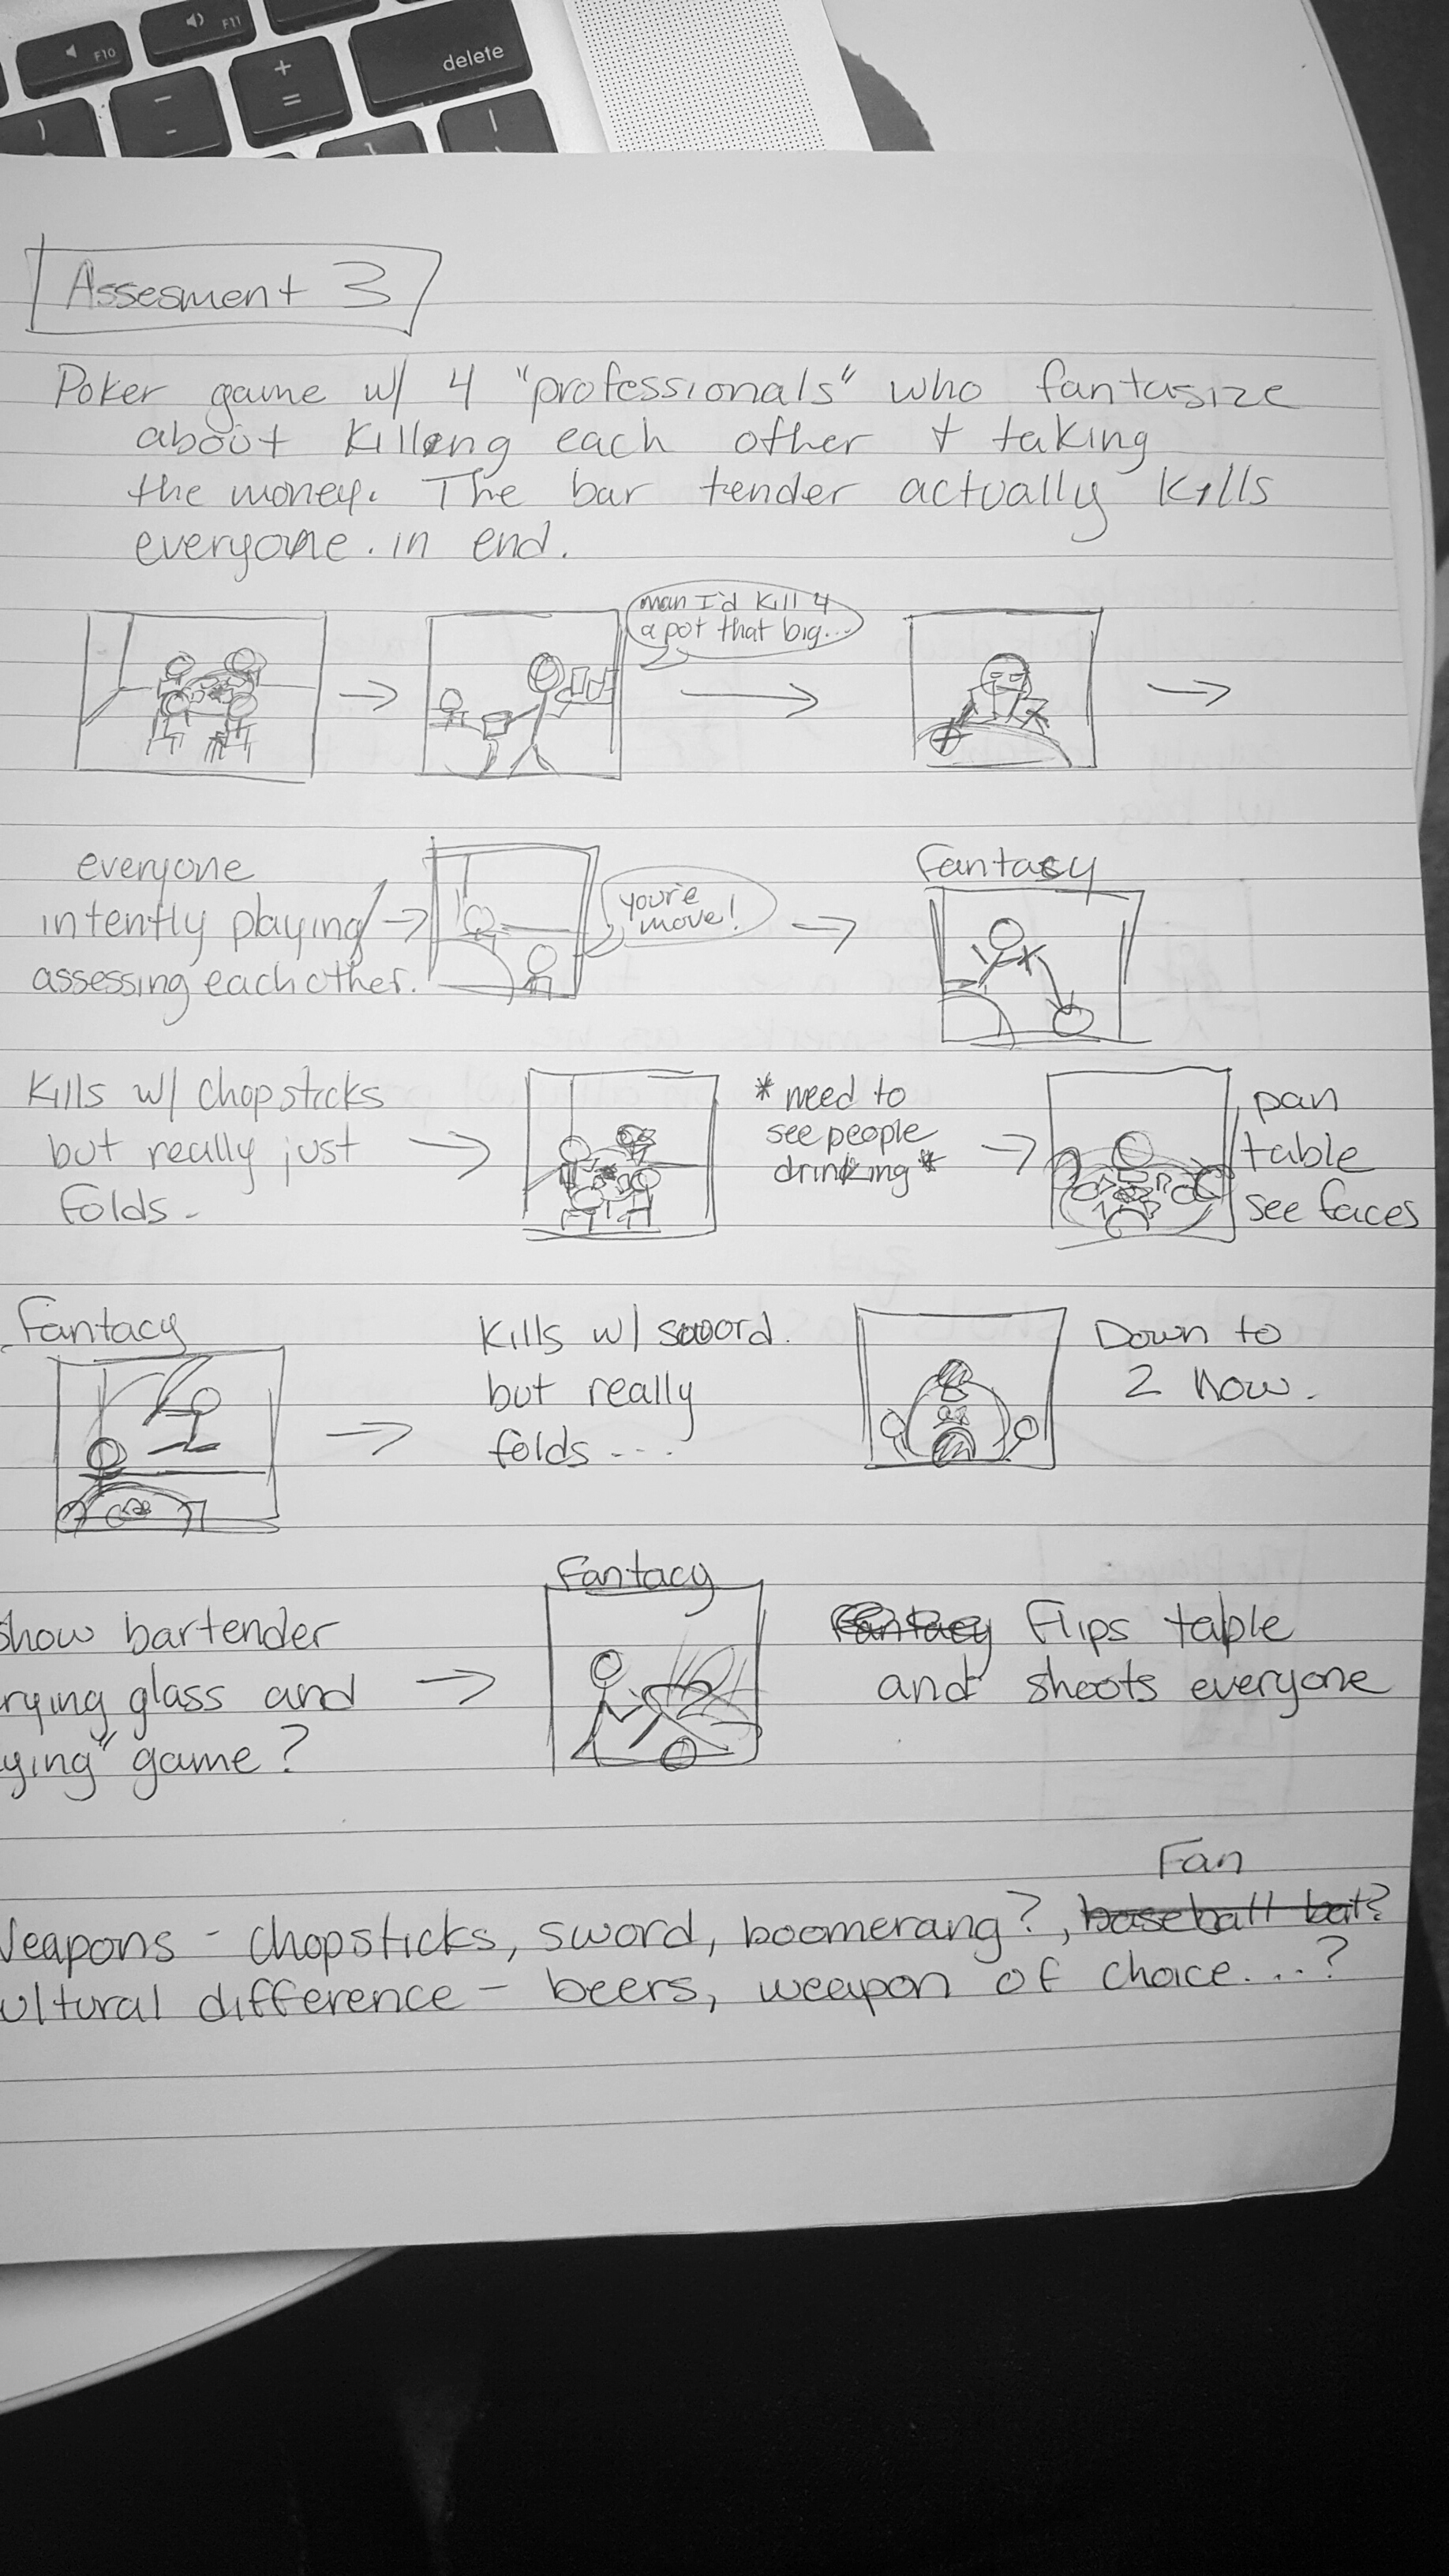 F10
F11
delete
+
=
Assesment 3
Poker game w/ 4 "professionals" who fantasize
about Killing each other + taking
the money. The bar tender actually Kills
everyone. in end.
man I'd Kill 4
a pot that big...
everyone
intently playing/
assessing each other.
you're
move!
Fantasy
Kills w/ chopsticks
but really just
folds -
*need to
see people
drinking*
pan
table
see faces
Fantacy
Kills w/ sword.
but really
folds ...
Down to
2 now.
show bartender
rying glass and
ying" game?
Fantacy
Fantacy Flips table
and shoots everyone
Fan
Weapons - chopsticks, sword, boomerang?, baseball bat?
ultural difference - beers, weapon of choice...?